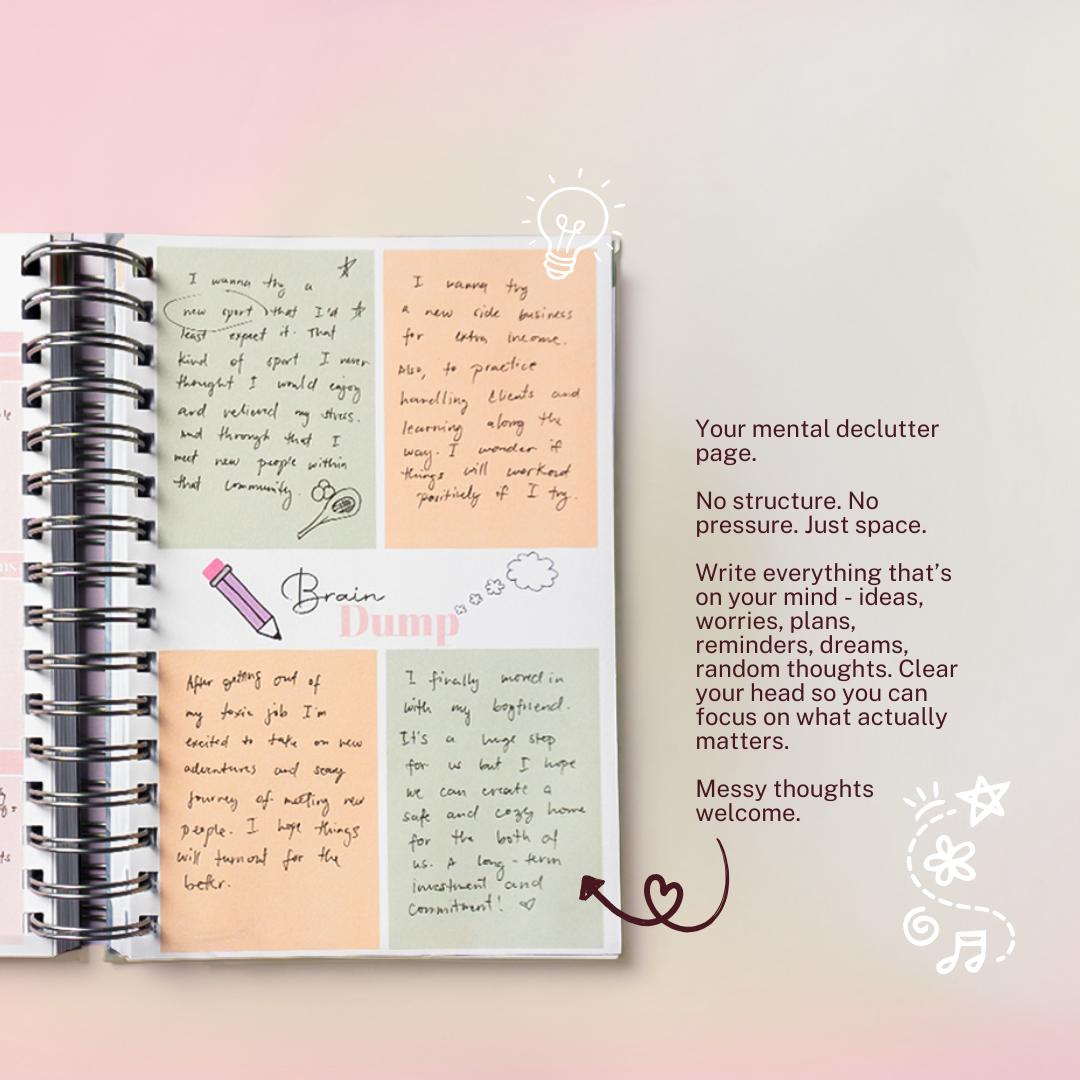 I wanna try a
new sport that I'd
least expect it. That
kind of sport I never
thought I would enjoy
and relieved my stress.
And through that I
meet new people within
that community.
I wanna try
a new side business
for extra income.
Also, to practice
handling clients and
learning along the
way. I wonder if
things will workout
positively if I try.
Brain
Dump
After getting out of
my toxic job I'm
excited to take on new
adventures and scary
journey of meeting new
people. I hope things
will turnout for the
better.
I finally moved in
with my boyfriend.
It's a huge step
for us but I hope
we can create a
safe and cozy home
for the both of
us. A long-term
investment and
commitment!
Your mental declutter
page.
No structure. No
pressure. Just space.
Write everything that's
on your mind - ideas,
worries, plans,
reminders, dreams,
random thoughts. Clear
your head so you can
focus on what actually
matters.
Messy thoughts
welcome.